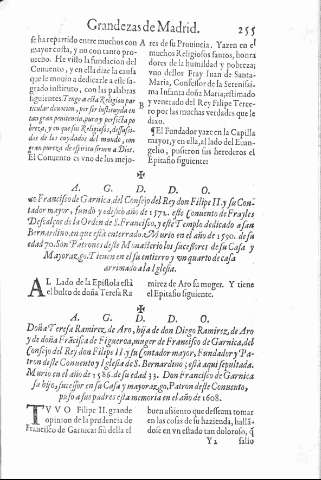 Grandezas de Madrid. 255
se ha repartido entre muchos con
mayor costa, y con tanto pro-
uecho. He visto la fundacion del
Conuento, y en ella dize la causa
que le mouio a dedicarle a este sa-
grado instituto, con las palabras
siguientes. Tengo a esta Religion par
ticular deuocion, por ser instituyda en
tan gran penitencia, pura y perfecta po
breza, y en que sus Religiosos, desasi-
dos de los cuydados del mundo, con
gran pureza de espiritu siruen a Dios.
El Conuento es vno de los mejo-
A res de su Prouincia. Yazen en el
muchos Religiosos santos, honra
dores de la humildad y pobreza;
vno dellos Fray Iuan de Santa-
Maria, Confessor de la Serenissi-
ma Infanta doña Maria; estimado
B y venerado del Rey Filipe Terce-
ro por las muchas verdades que le
dixo.
¶ El Fundador yaze en la Capilla
mayor, y en ella, al lado del Euan-
gelio, pusieron sus herederos el
Epitafio siguiente:
✠
A. G. D. D. O.
Francisco de Garnica, del Consejo del Rey don Filipe II. y su Con-
tador mayor, fundò y edificò año de 1572. este Conuento de Frayles
Descalços de la Orden de S. Francisco, y este Templo dedicado a san
Bernardino, en que està enterrado. Murio en el año de 1590. de su
edad 70. Son Patrones deste Monasterio los sucessores de su Casa y
Mayorazgo. Tienen en el su entierro y vn quarto de casa
arrimado a la Iglesia.
AL Lado de la Epistola està
el bulto de doña Teresa Ra
mirez de Aro su muger. Y tiene
el Epitafio siguiente.
✠
A. G. D. D. O.
Doña Teresa Ramirez, de Aro, hija de don Diego Ramirez, de Aro
y de doña Frãcisca de Figueroa, muger de Francisco de Garnica, del
Consejo del Rey don Filipe II. y su Contador mayor, Fundador y Pa-
tron deste Conuento y Iglesia de S. Bernardino; està aqui sepultada.
Murio en el año de 1586. de su edad 33. Don Francisco de Garnica
su hijo, sucessor en su Casa y mayorazgo, Patron deste Conuento,
puso a sus padres esta memoria en el año de 1608.
TVVO Filipe II. grande
opinion de la prudencia de
Francisco de Garnica: fiò della el
buen assiento que desseaua tomar
en las cosas de su hazienda, hallã-
dose en vn estado tan doloroso, q̃
Y 2 salio